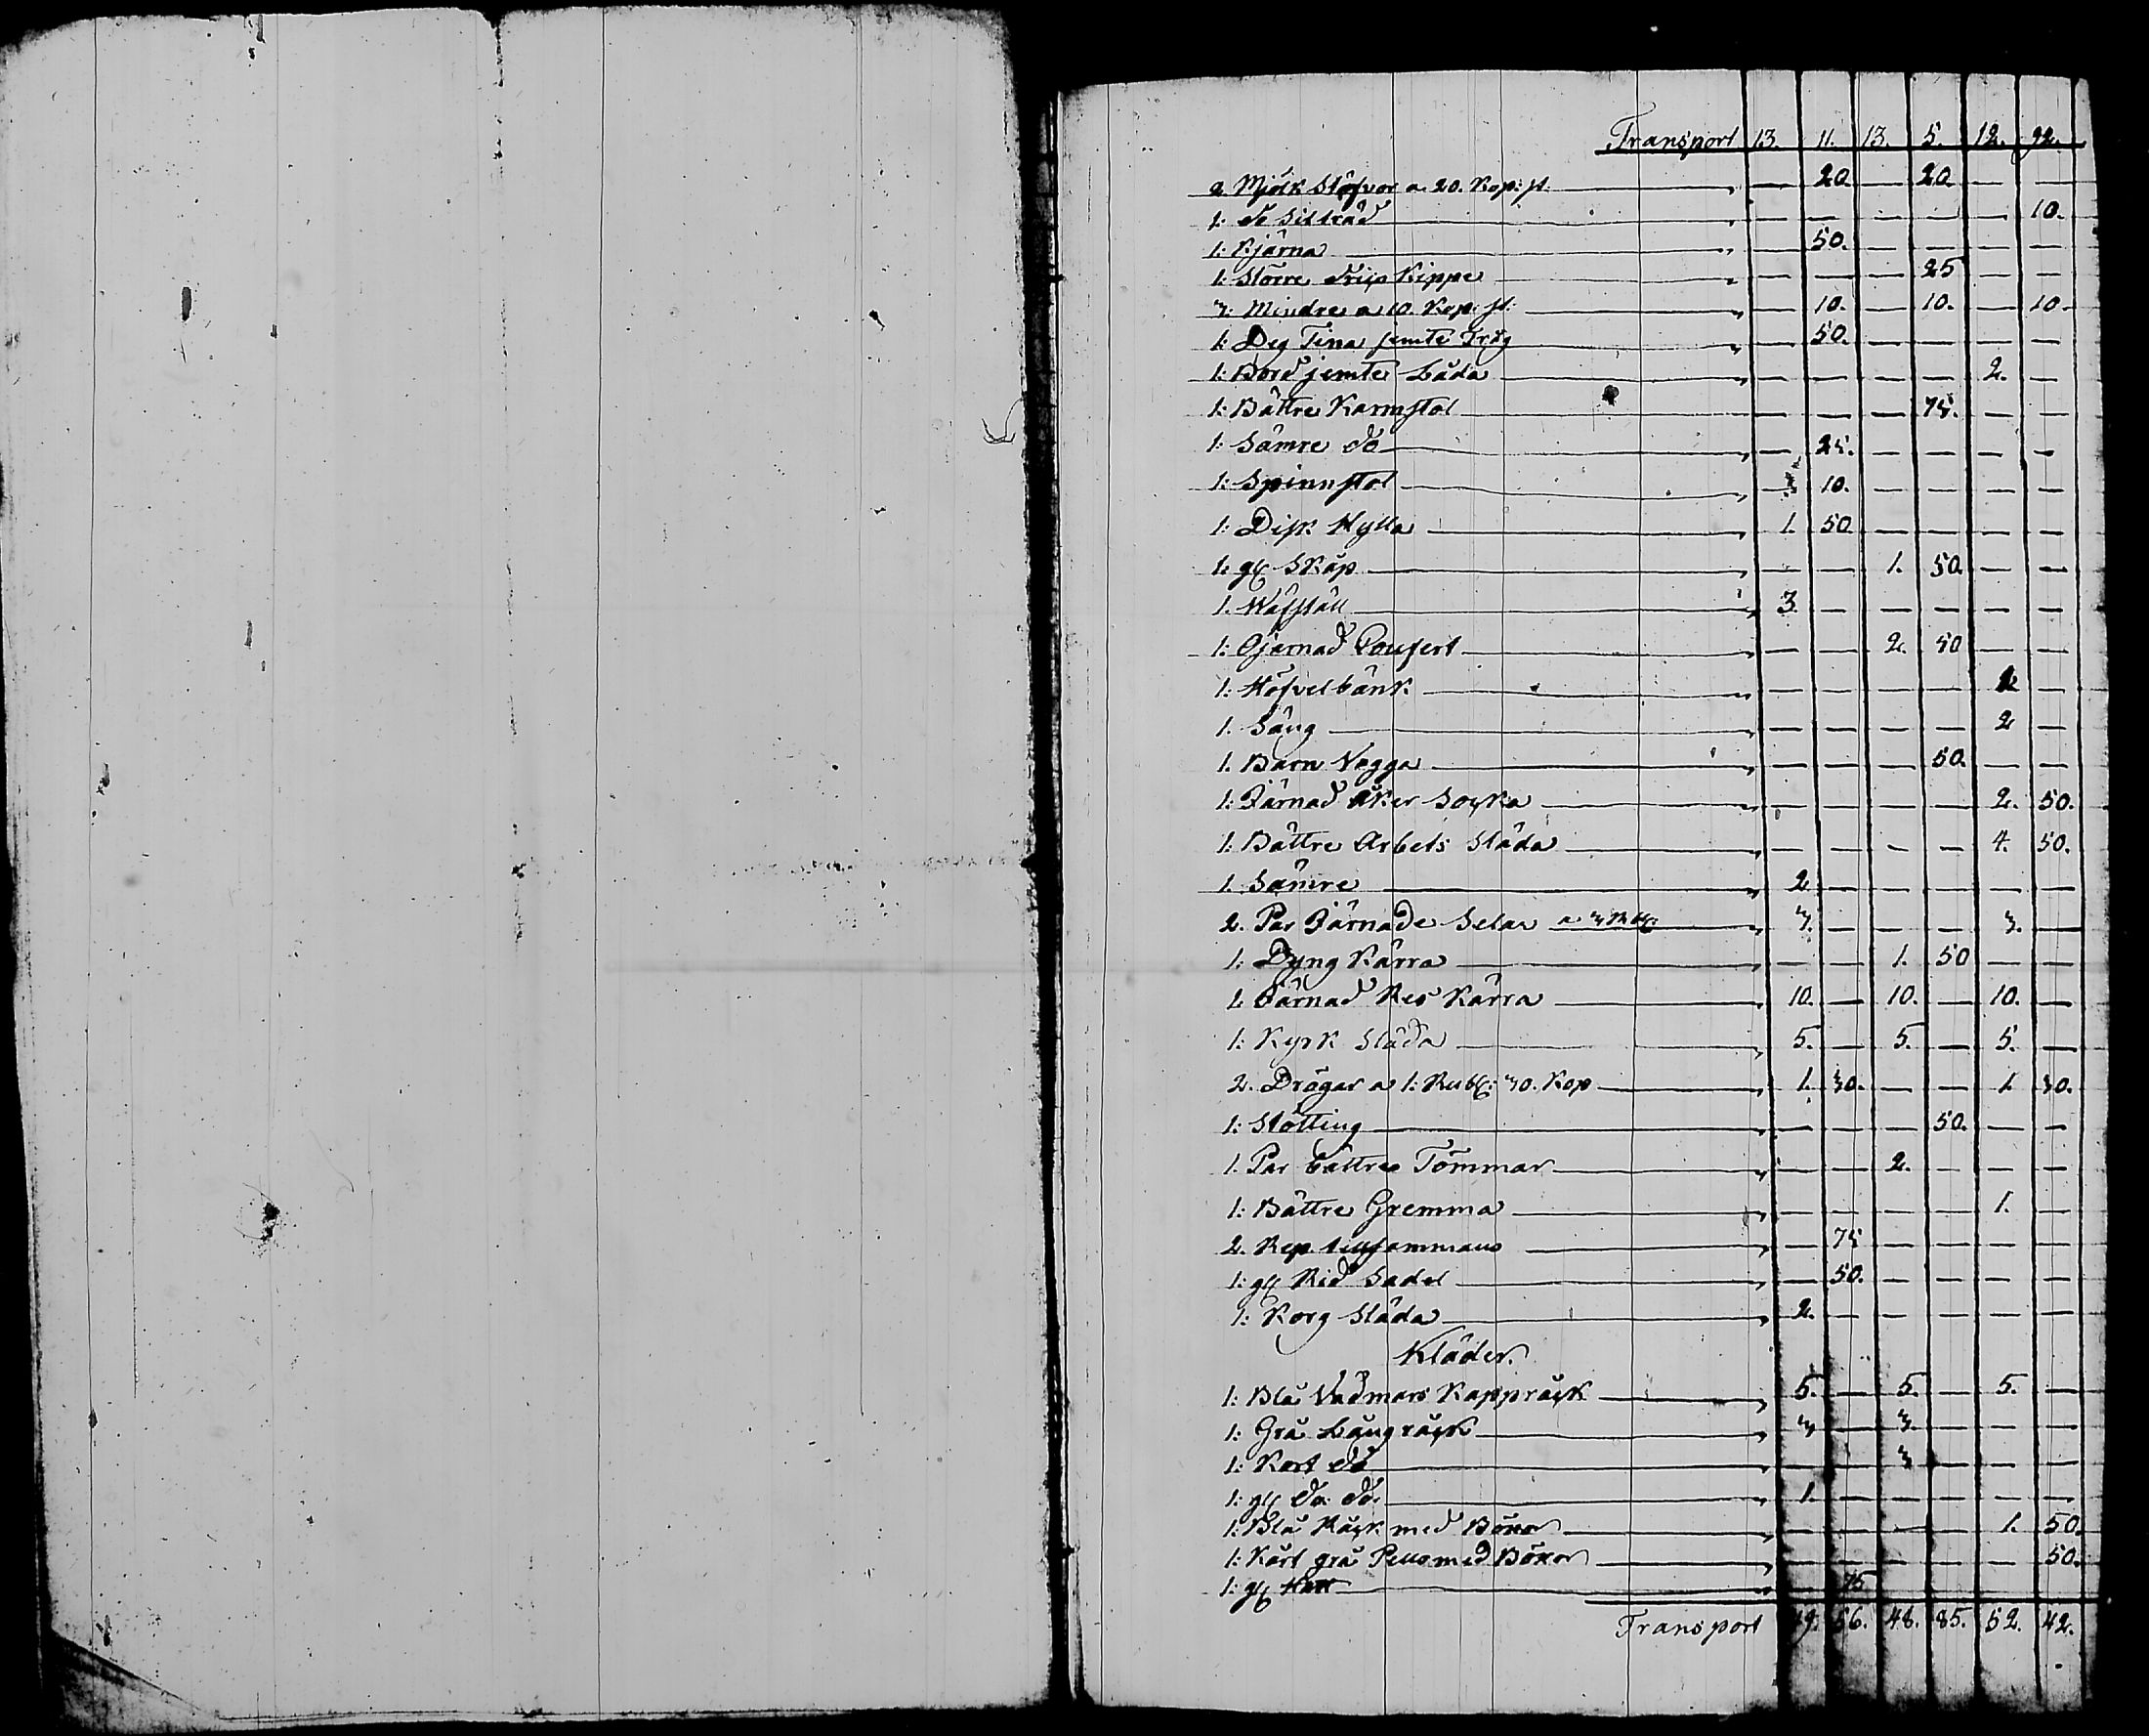 Transport 13. 11. 13. 5. 12. 92.
2 Mjölk Stäfvor a 20. Kop: st. — 20 — 20 — —
1: do Siltråd — — — — — 10.
1: Kjärna — 50. — — — —
1: Större Krips Kippe — — — 25 — —
3: Mindre a 10. Kop: st: — 10. — 10. — 10
1: Deg Tina jemte Tråg — 50. — — — —
1: Bord jemte Låda — — — — 2. —
1: Bättre Karmstol — — — 75. — —
1: Sämre do — 25. — — — —
1: Spinnstol — 10. — — — —
1: Disk Hylla 1. 50. — — — —
1: gl Skåp — — 1. 50. — —
1. Wäfställ 3. — — — — —
1: Järnad — — 2. 50 — —
1: Höfvelbänk — — — — 2 —
1. Säng — — — — 2 —
1. Barn Vagga — — — 50. — —
1: Järnad Åker Soçka — — — — 2. 50.
1: Bättre Arbets Släda — — — — 4. 50.
1. Sämre 2 — — — — —
2. Par Järnade Selar a 3 Rbl: 3. — — — 3. —
1: Dyng Kärra — — 1. 50 — —
1 Järnad Res Kärra 10. — 10. — 10. —
1: Kyrk Släda 5. — 5. — 5. —
2. Drögar a 1: Rubl: 30. Kop 1. 30. — — 1. 30.
1: Stötting — — — 50. — —
1. Par bättre Tömmar — — 2. — — —
1: Bättre Gremma — — — — 1. —
2. Rep tillsammans — 75 — — — —
1: gl Rid Sadel — 50. — — — —
1: Korg Släda 2. — — — — —
Kläder.
1: Blå Vadmars Kappråck 5. — 5. — 5. —
1: Grå Långråck 3 — 3. — — —
1: Kort do — — 3 — — —
1: gl do do. 1. — — — — —
1: Blå Råck med Böxor — — — — 1. 50.
1: Kort grå med Böxor — — — — — 50.
1: gl Hatt — 75
Transport 49. 56. 48. 85. 52. 42.